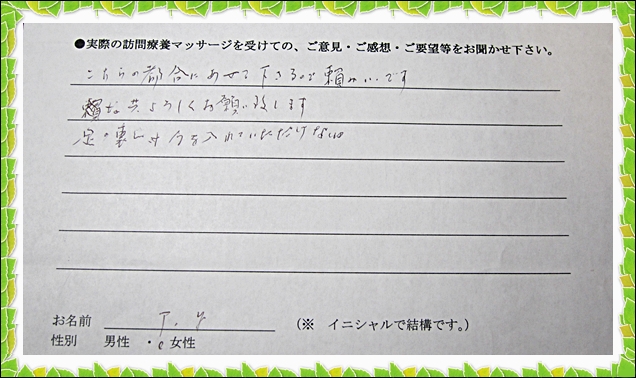 ●実際の訪問療養マッサージを受けての、ご意見・ご感想・ご要望等をお聞かせ下さい。
こちらの都合にあわせて下さるので頼みいいです
共よろしくお願い致します
足の裏も 力を入れていただけ
お名前 T.Y (※ イニシャルで結構です。)
性別 男性 ・ 女性